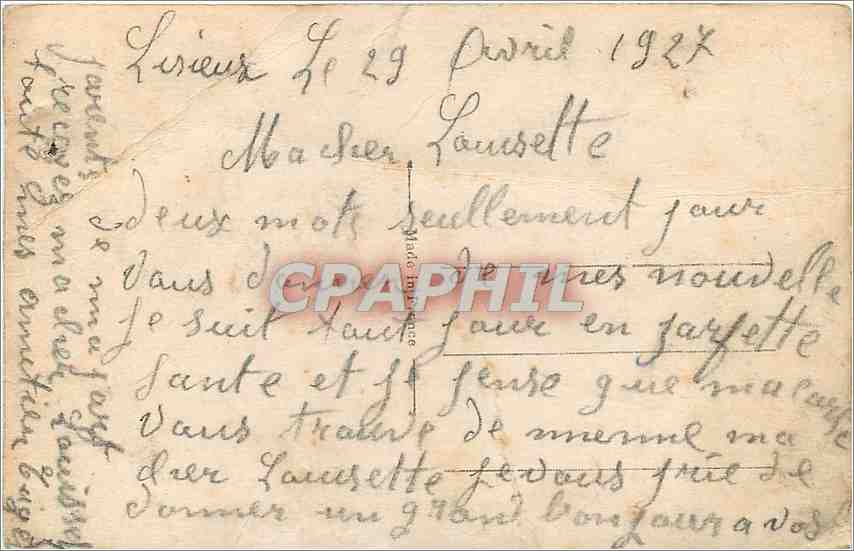 Lisieux Le 29 Avril 1927
Ma cher Lousette
deux mots seullement pour
vous donner de mes nouvelle
je suit tout jour en parfette
sante et je pense que ma carte
vous trouve de mienne ma
cher Lousette je vous prie de
donner un grand bonjour a vos
parents de ma part
recoves ma cher Louisse
toute mes amitier
Made in France
CPAPHIL